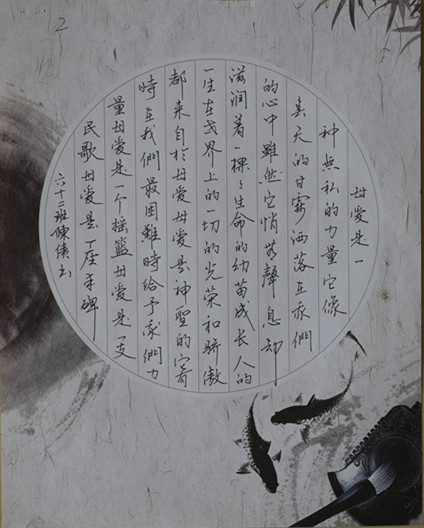 2
母爱是一
种無私的力量它像
春天的甘露洒落在我們
的心中雖然它悄無聲息却
滋润着一棵々生命的幼苗成长人的
一生在世界上的一切的光荣和骄傲
都来自於母爱母爱是神聖的它有
時在我們最困難時给予我們力
量母爱是一个摇籃母爱是一支
民歌母爱是一座丰碑
六十二班陳倩书